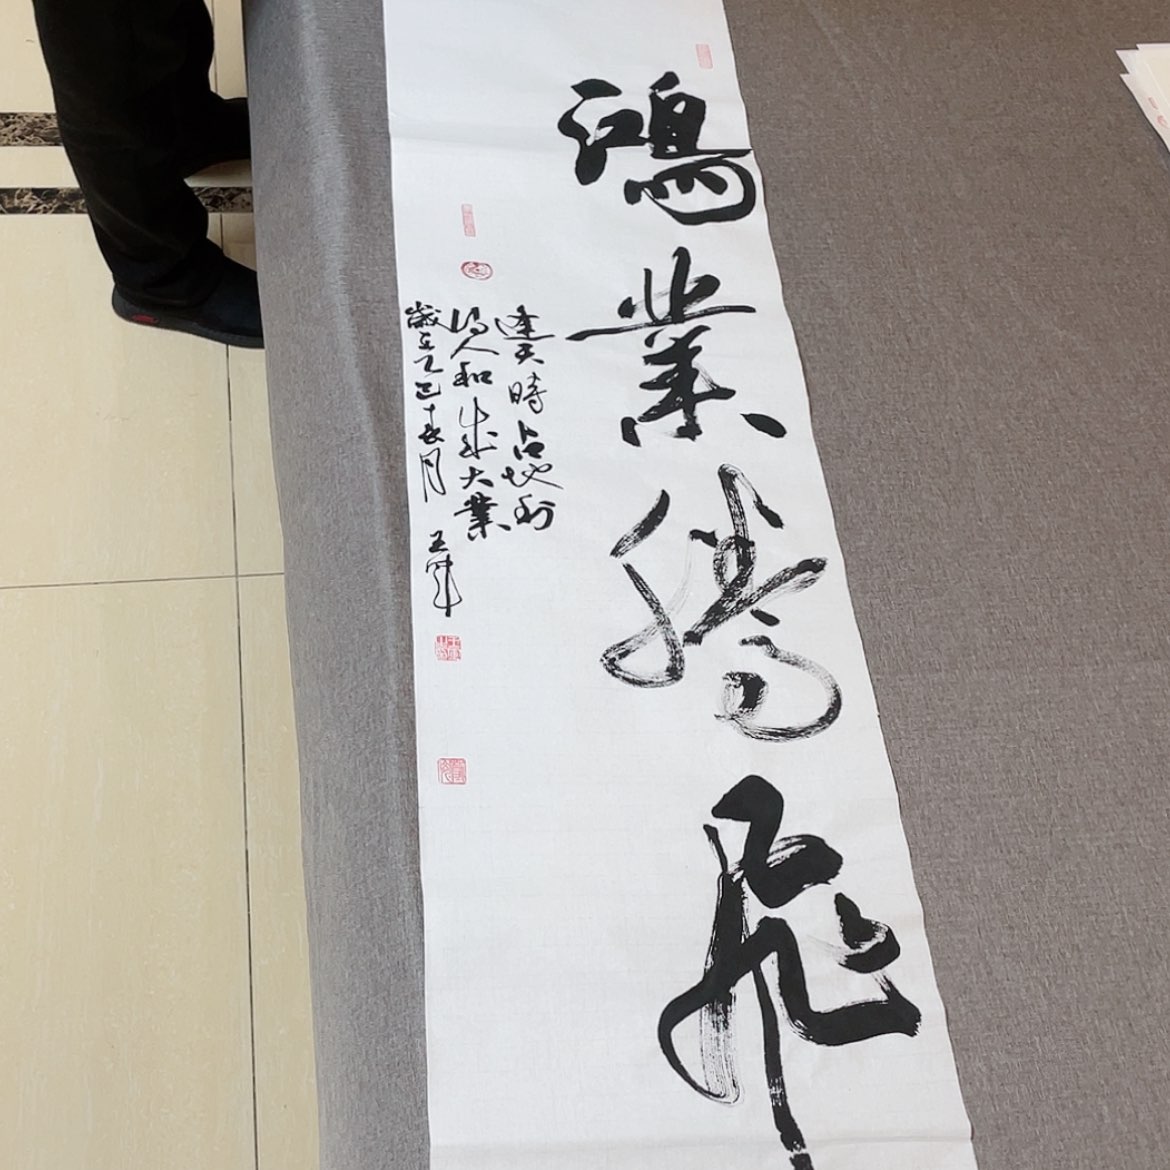 鴻業騰飛
逢天時占地利
得人和成大業
歲在乙巳春月